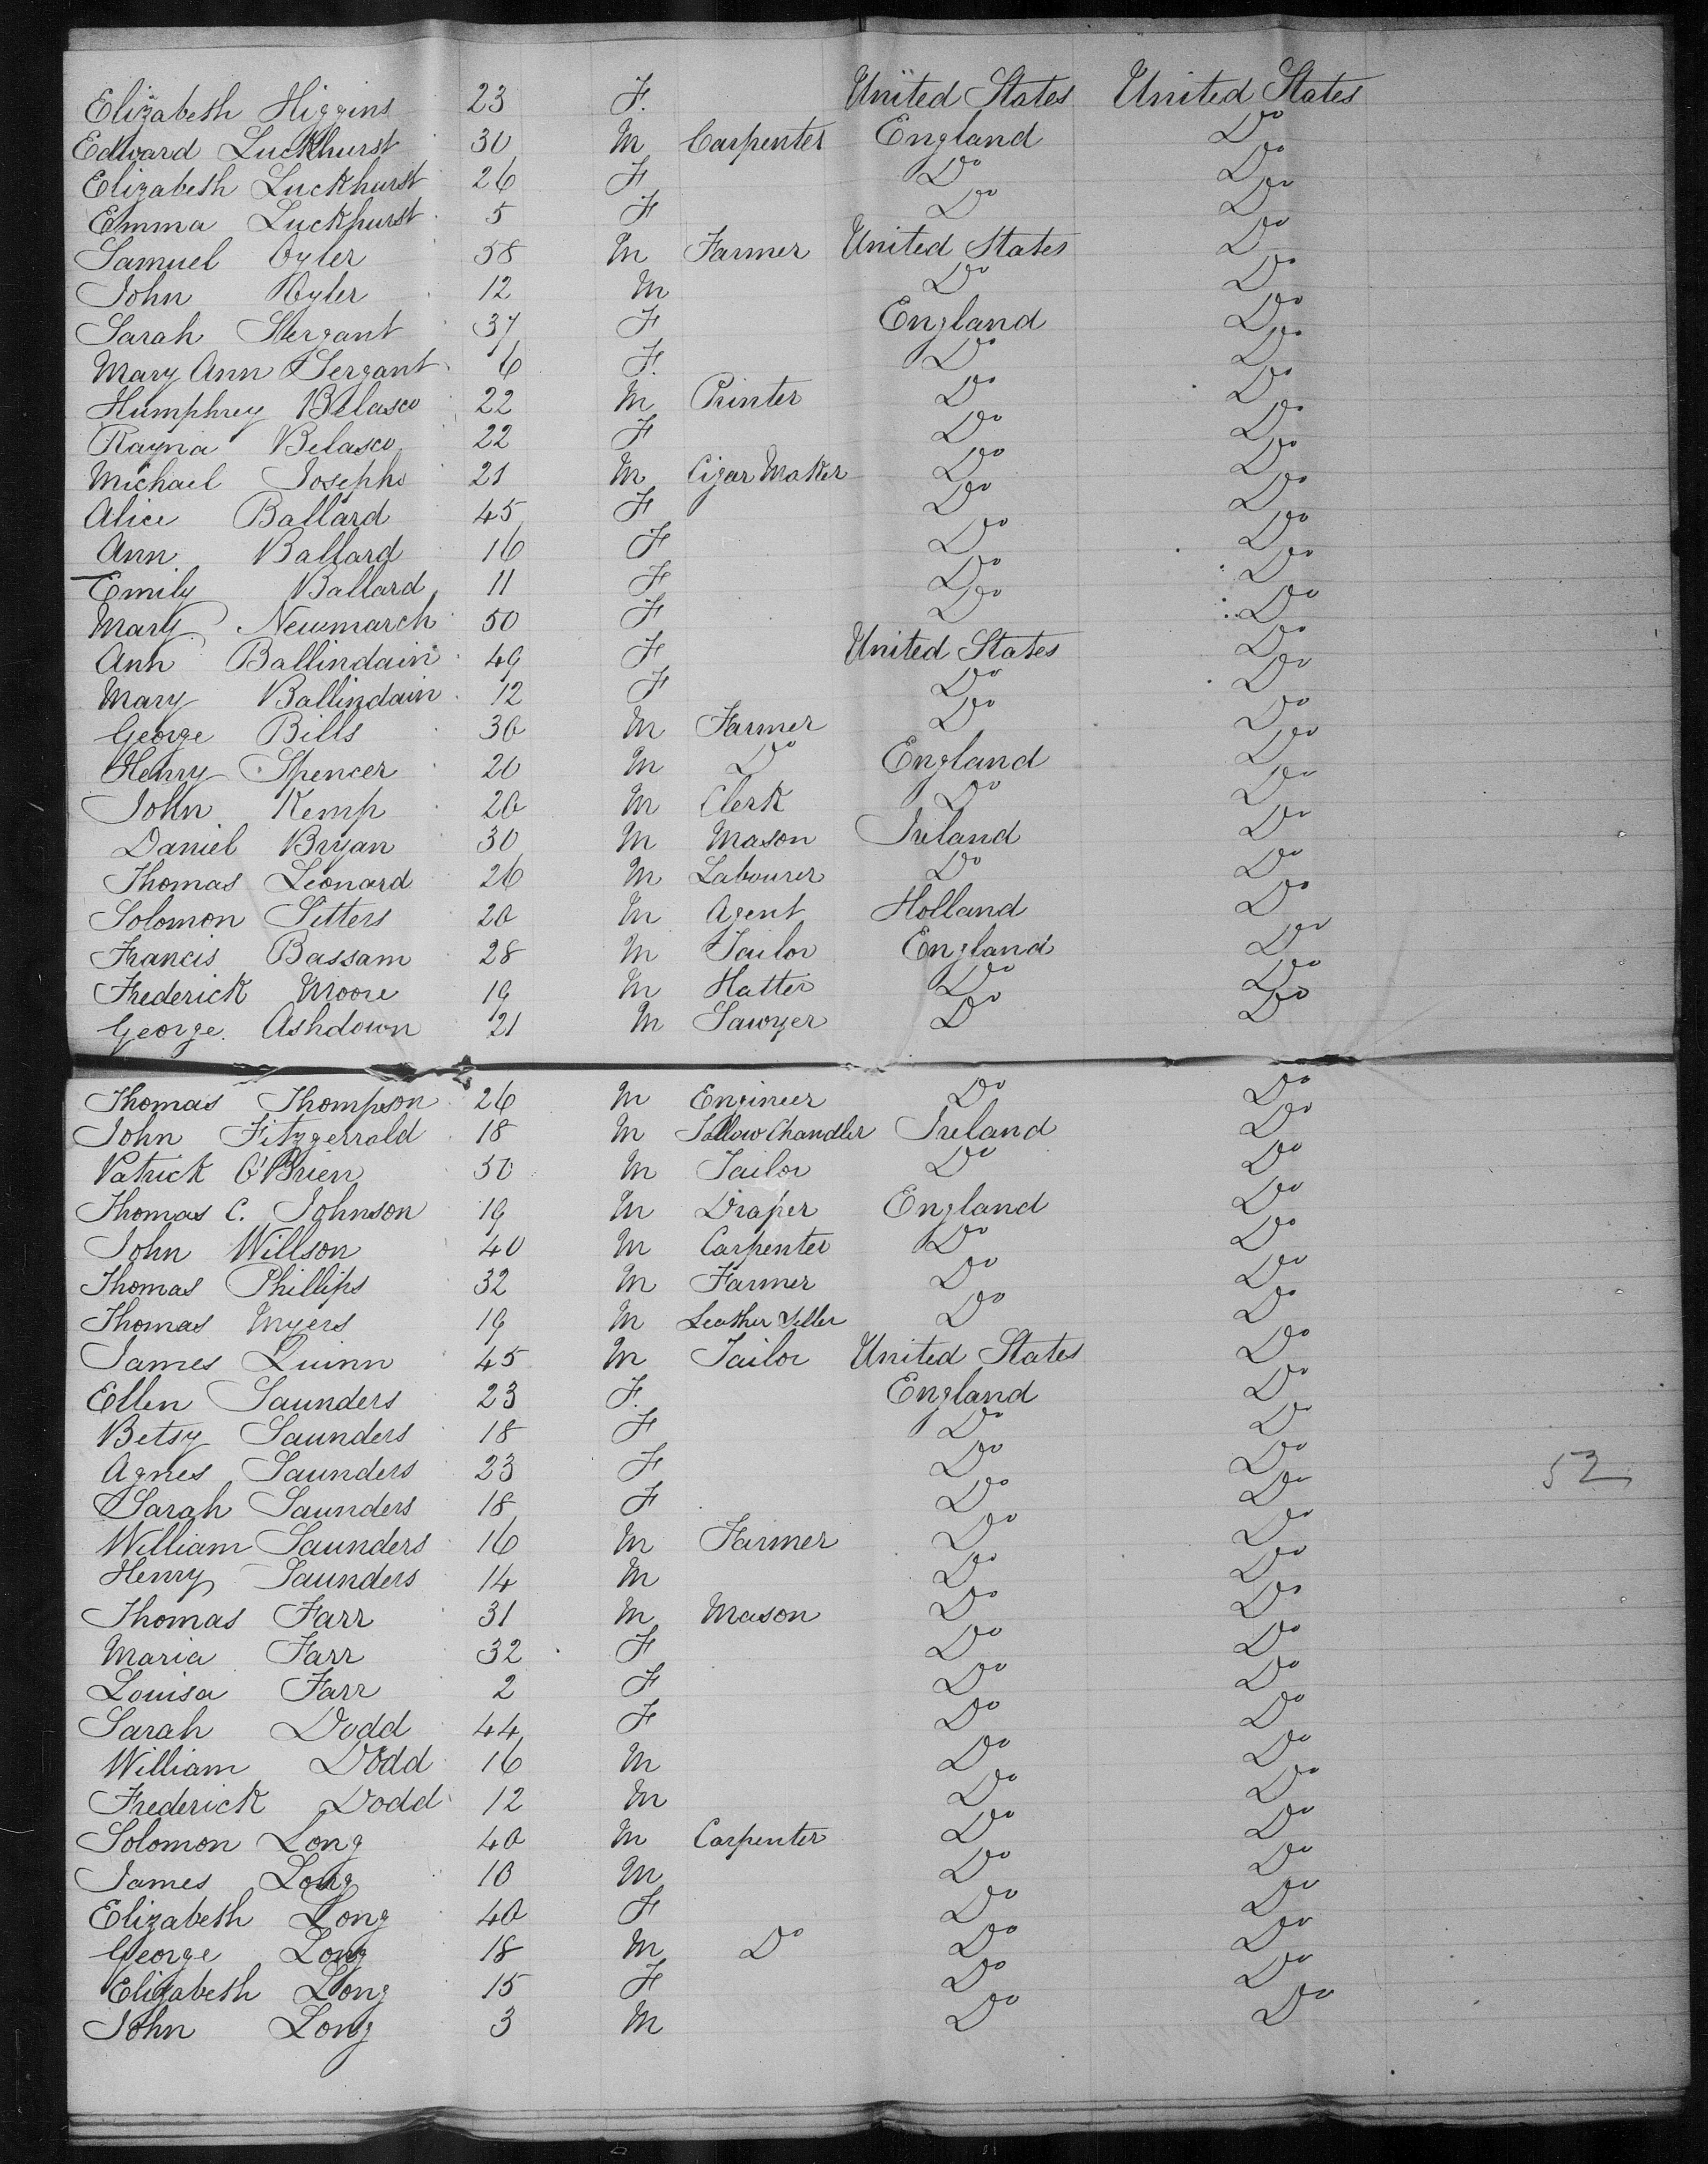 Elizabeth Higgins 23 F. United States United States
Edward Luckhurst 30 M Carpenter England Do
Elizabeth Luckhurst 26 F Do Do
Emma Luckhurst 5 F Do Do
Samuel Oyler 58 M Farmer United States Do
John Oyler 12 M Do Do
Sarah Sergant 37 F England Do
Mary Ann Sergant 6 F. Do Do
Humphrey Belasco 22 M Printer Do Do
Rayna Belasco 22 F Do Do
Michael Josephs 21 M Cigar Maker Do Do
Alice Ballard 45 F Do Do
Ann Ballard 16 F Do Do
Emily Ballard 11 F Do Do
Mary Newmarch 50 F Do Do
Ann Ballindain 49 F United States Do
Mary Ballindain 12 F Do Do
George Bills 30 M Farmer Do Do
Henry Spencer 20 M Do England Do
John Kemp 20 M Clerk Do Do
Daniel Bryan 30 M Mason Ireland Do
Thomas Leonard 26 M Labourer Do Do
Solomon Sitters 20 M Agent Holland Do
Francis Bassam 28 M Tailor England Do
Frederick Moore 19 M Hatter Do Do
George. Ashdown 21 M Sawyer Do Do
Thomas Thompson 26 M Engineer Do Do
John Fitzgerrald 18 M Tallow Chandler Ireland Do
Patrick O'Brien 50 M Tailor Do Do
Thomas C. Johnson 19 M Draper England Do
John Willson 40 M Carpenter Do Do
Thomas Phillips 32 M Farmer Do Do
Thomas Myers 19 M Leather Seller Do Do
James Quinn 45 M Tailor United States Do
Ellen Saunders 23 F. England Do
Betsy Saunders 18 F Do Do
Agnes Saunders 23 F Do Do 52
Sarah Saunders 18 F Do Do
William Saunders 16 M Farmer Do Do
Henry Saunders 14 M Do Do
Thomas Farr 31 M Mason Do Do
Maria Farr 32 F Do Do
Louisa Farr 2 F Do Do
Sarah Dodd 44 F Do Do
William Dodd 16 M Do Do
Frederick Dodd 12 M Do Do
Solomon Long 40 M Carpenter Do Do
James Long 10 M Do Do
Elizabeth Long 40 F Do Do
George Long 18 M Do Do Do
Elizabeth Long 15 F Do Do
John Long 3 M Do Do